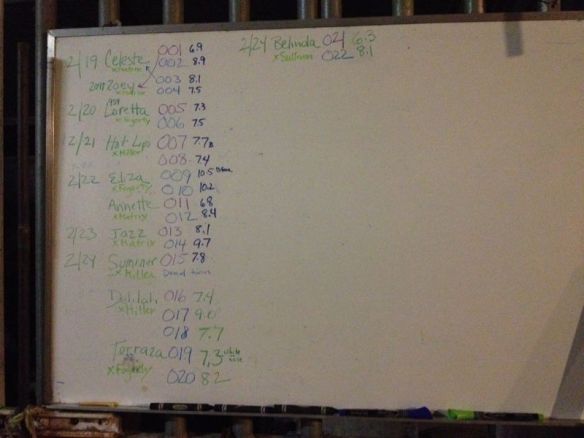 2/19 Celeste 001 6.9
x Matrix 002 8.9
Zoey 003 8.1
004 7.5
2/20 Loretta 005 7.3
x Fogerty 006 7.5
2/21 Hot Lips 007 7.7
x Miller 008 7.4
2/22 Eliza 009 10.5
x Fogerty 010 10.2
Annette 011 6.8
x Matrix 012 8.4
2/23 Jazz 013 8.1
x Matrix 014 9.7
2/24 Summer 015 7.8
x Miller Dead twin
Delilah 016 7.4
x Miller 017 9.0
018 7.7
Terraza 019 7.3 white nose
x Fogerty 020 8.2
2/24 Belinda 021 6.3
x Sullivan 022 8.1